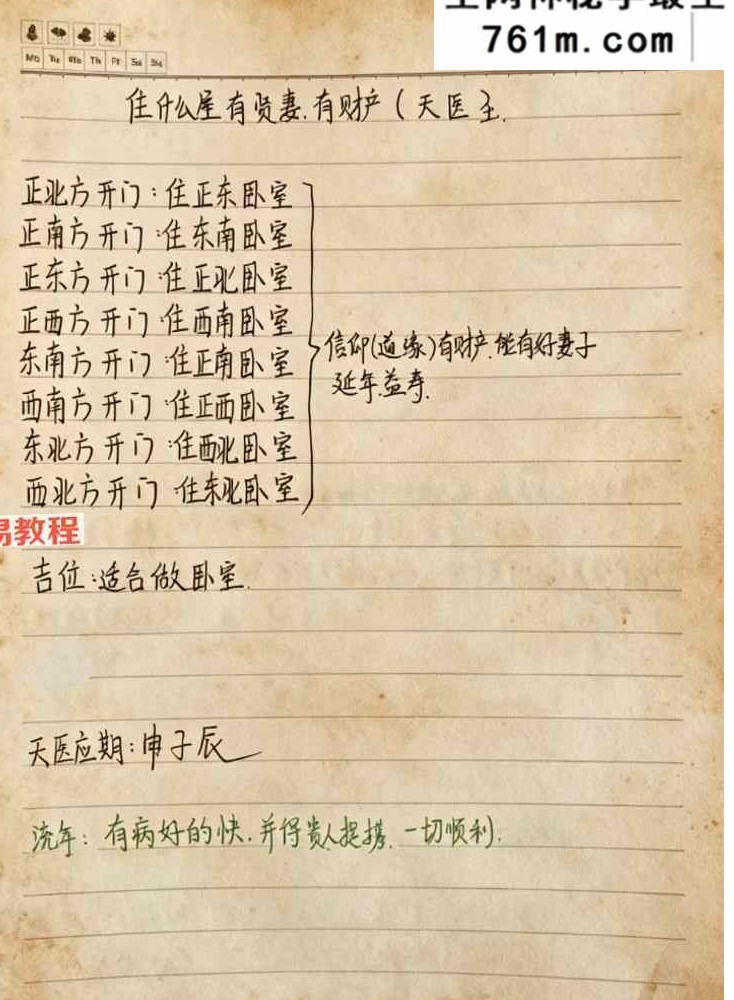 761m.com
Mo Tu We Th Fr Sa Su
住什么屋有贤妻.有财产(天医)主.
正北方开门:住正东卧室
正南方开门:住东南卧室
正东方开门:住正北卧室
正西方开门:住西南卧室
东南方开门:住正南卧室
西南方开门:住正西卧室
东北方开门:住西北卧室
西北方开门 住东北卧室
信仰(道缘)有财产.能有好妻子
延年益寿.
易教程
吉位:适合做卧室.
天医应期:申子辰
流年:有病好的快.并得贵人提携.一切顺利.